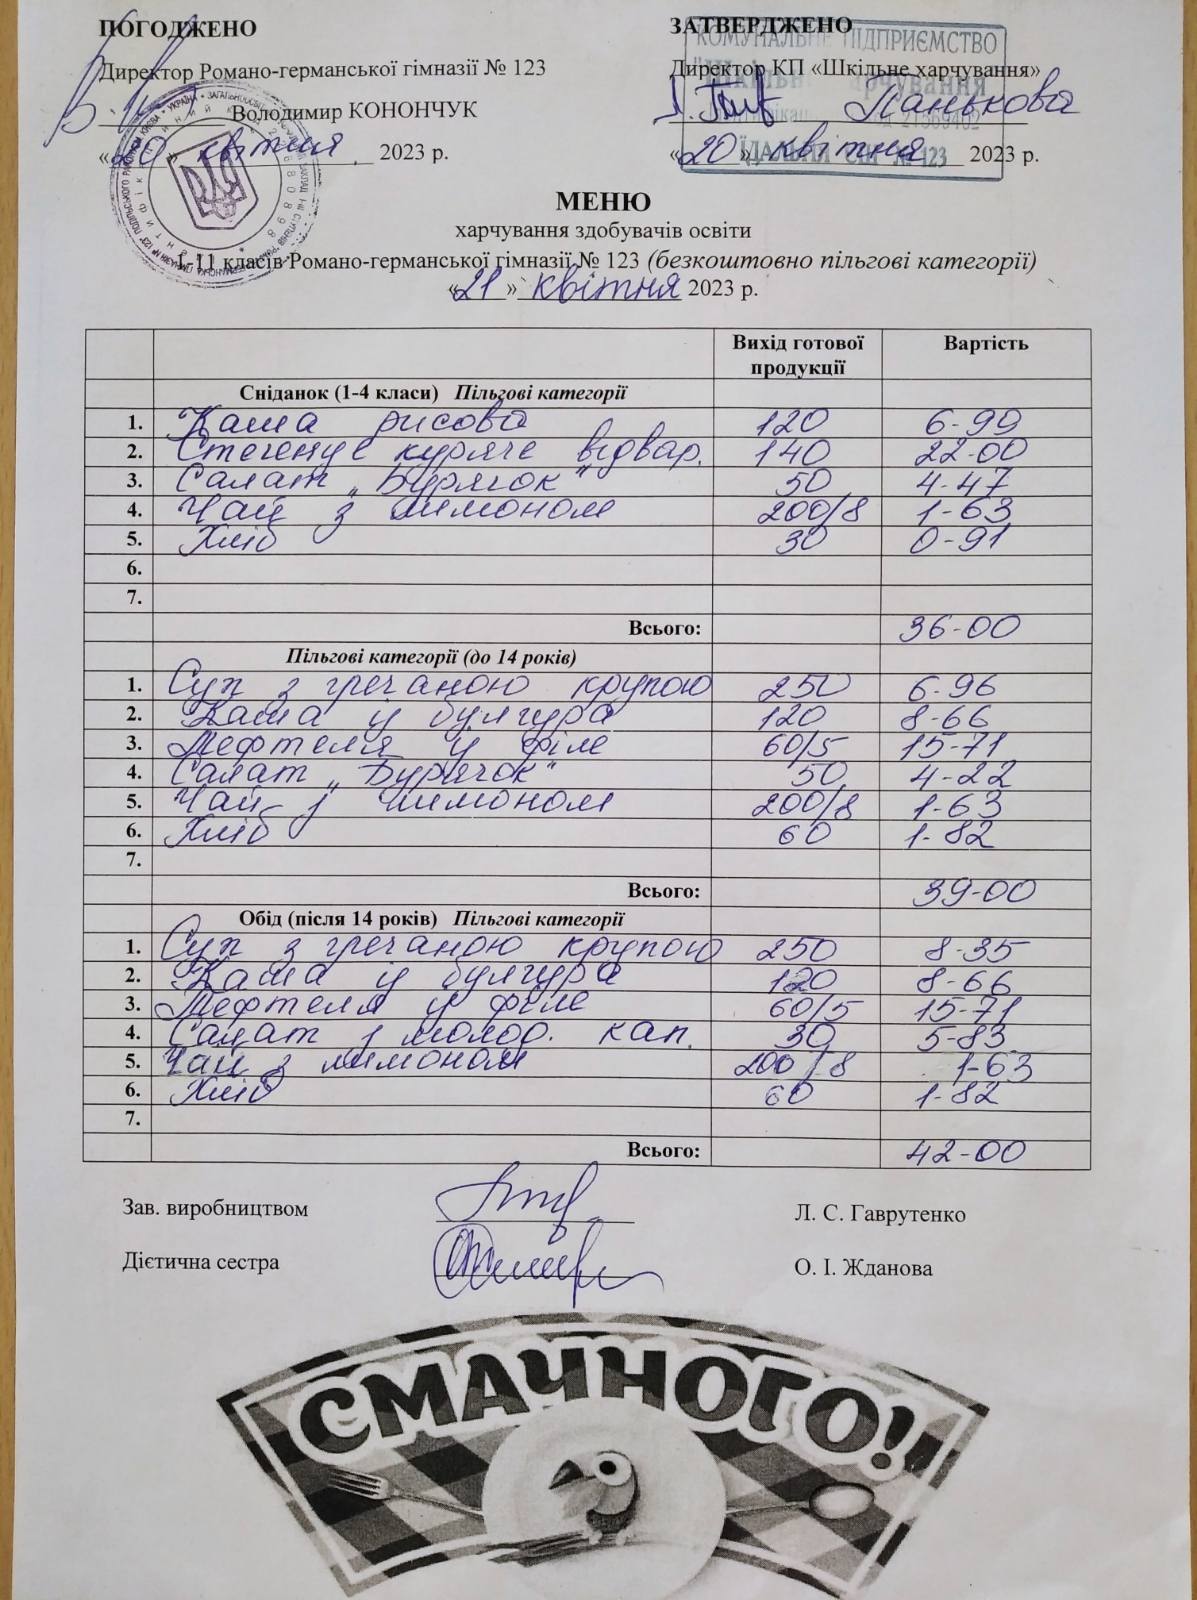 ПОГОДЖЕНО
Директор Романо-германської гімназії № 123
Володимир КОНОНЧУК
«20» квітня 2023 р.
ЗАТВЕРДЖЕНО
Директор КП «Шкільне харчування»
Панькова
«20» квітня 2023 р.
КОМУНАЛЬНЕ ПІДПРИЄМСТВО
"Шкільне харчування
ЇДАЛЬНЯ СШ № 123
МЕНЮ
харчування здобувачів освіти
1-11 класів Романо-германської гімназії № 123 (безкоштовно пільгові категорії)
«21» квітня 2023 р.
Вихід готової продукції Вартість
Сніданок (1-4 класи) Пільгові категорії
1. Каша рисова 120 6-99
2. Стегенце куряче відвар. 140 22-00
3. Салат „Бурячок" 50 4-47
4. Чай з лимоном 200/8 1-63
5. Хліб 30 0-91
6.
7.
Всього: 36-00
Пільгові категорії (до 14 років)
1. Суп з гречаною крупою 250 6-96
2. Каша із булгура 120 8-66
3. Тефтеля із філе 60/5 15-71
4. Салат „Бурячок" 50 4-22
5. Чай з лимоном 200/8 1-63
6. Хліб 60 1-82
7.
Всього: 39-00
Обід (після 14 років) Пільгові категорії
1. Суп з гречаною крупою 250 8-35
2. Каша із булгура 120 8-66
3. Тефтеля із філе 60/5 15-71
4. Салат з молод. кап. 30 5-83
5. Чай з лимоном 200/8 1-63
6. Хліб 60 1-82
7.
Всього: 42-00
Зав. виробництвом Л. С. Гаврутенко
Дієтична сестра О. І. Жданова
СМАЧНОГО!